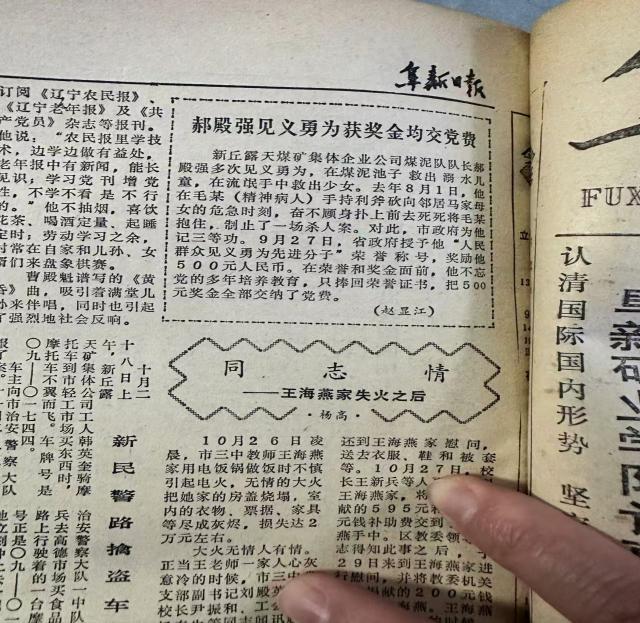 阜新日报
订阅《辽宁农民报》、
《辽宁老年报》及《共
产党员》杂志等报刊。
他说:"农民报里学技
术,边学边做有益处,
老年报中有新闻,能长
见识;学习党刊增党
性,不学不看是不行
的。"他不抽烟,喜饮
花茶、喝酒定量、起睡
定时,劳动学习之余,
时常在自家和儿孙、女
婿们来盘象棋赛。
曹殿魁谱写的《黄
曲,吸引着满堂儿
孙来伴唱,同时也引起
了强烈地社会反响。
郝殿强见义勇为获奖金均交党费
新丘露天煤矿集体企业公司煤泥队队长郝
殿强多次见义勇为,在煤泥池子救出溺水儿
童,在流氓手中救出少女。去年8月1日,他
在毛某(精神病人)手持利斧砍向邻居马家母
女的危急时刻,奋不顾身扑上前去死死将毛某
抱住,制止了一场杀人案。对此,市政府为他
记三等功。9月27日,省政府授予他"人民
群众见义勇为先进分子"荣誉称号,奖励他
500元人民币。在荣誉和奖金面前,他不忘
党的多年培养教育,只捧回荣誉证书,把500
元奖金全部交纳了党费。
(赵显江)
同志情
——王海燕家失火之后
·杨高·
10月26日凌
晨,市三中教师王海燕
家用电饭锅做饭时不慎
引起电火,无情的大火
把她家的房盖烧塌,室
内的衣物、票据、家具
等尽成灰烬,损失达2
万元左右。
大火无情人有情。
正当王老师一家人心灰
意冷的时候,市三中
支部副书记刘殿英
校长尹振和、工会
还到王海燕家慰问,
送去衣服、鞋和被套
等。10月27日,校
长王新兵等人
王海燕家,将
献的595元
元钱补助费交到
燕手中。区教委领
志得知此事之后,
29日来到王海燕家进
行慰问,并将教委机关
捐献的200元钱
海燕。王海燕
新民警路擒盗车
十月二
十八日上
午,新丘露
天矿集体公司工人韩英奎骑摩
托车到市轻工市场买东西时,
摩托车不翼而飞。车牌号是
〇九—〇一七四四。
车主向市治安警察大队
治安警察大队一中队
兵去高德市场买食品
路上行驶着的一台摩
号正是〇九—〇一
FUX
认清国际国内形势 坚